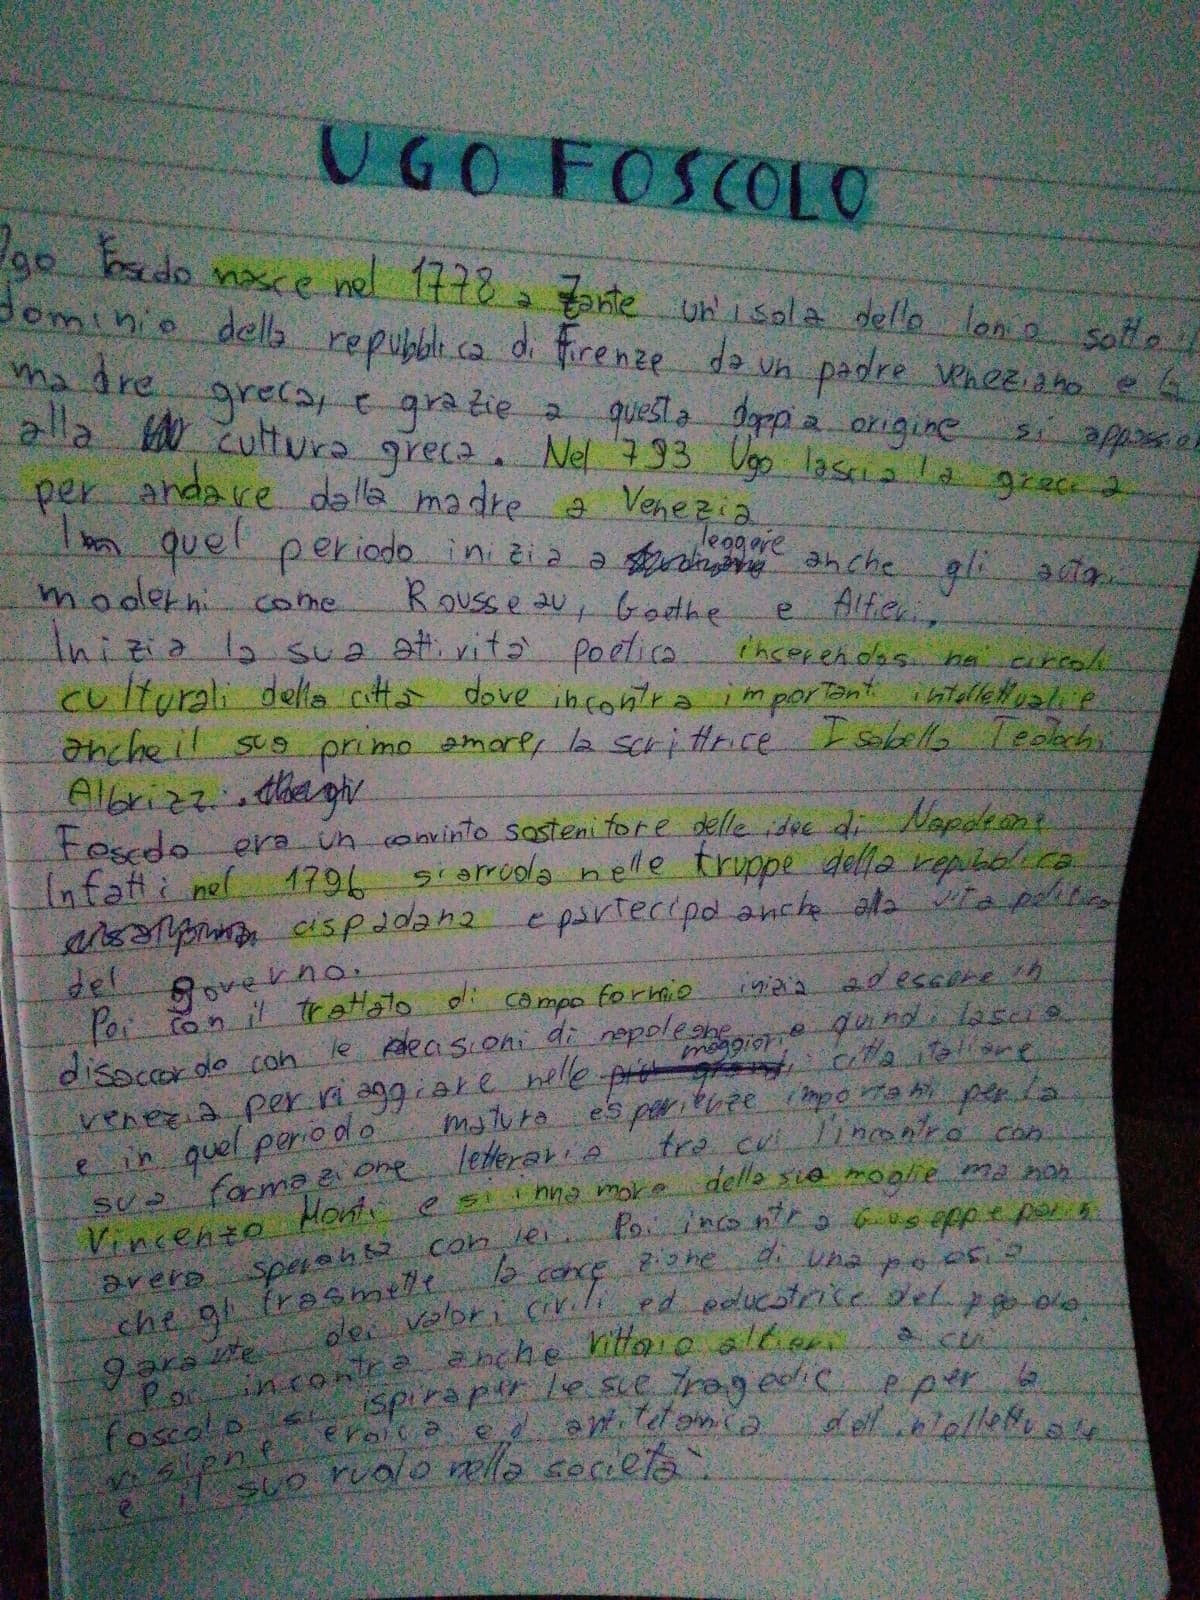 UGO FOSCOLO
Ugo Foscolo nasce nel 1778 a Zante un'isola dello Ionio sotto il
dominio della repubblica di Firenze da un padre veneziano e la
madre greca, e grazie a questa doppia origine si appassio
alla cultura greca. Nel 793 Ugo lascia la grecia
per andare dalla madre a Venezia
In quel periodo inizia a leggere anche gli autori
moderni come Rousseau, Goethe e Alfieri.
Inizia la sua attività poetica inserendosi nei circoli
culturali della città dove incontra importanti intellettuali e
anche il suo primo amore, la scrittrice Isabella Teotochi
Albrizzi.
Foscolo era un convinto sostenitore delle idee di Napoleone
Infatti nel 1796 si arruola nelle truppe della repubblica
cispadana e partecipa anche alla vita politica
del governo.
Poi con il trattato di campo formio inizia ad essere in
disaccordo con le decisioni di napoleone e quindi lascia
venezia per viaggiare nelle maggiori città italiane
e in quel periodo matura esperienze importanti per la
sua formazione letteraria tra cui l'incontro con
Vincenzo Monti e si innamora della sua moglie ma non
avera speranza con lei. Poi incontra Giuseppe parini
che gli trasmette la concezione di una poesia
garante dei valori civili ed educatrice del popolo
Poi incontra anche Vittorio alfieri a cui
foscolo si ispira per le sue tragedie e per la
visione eroica ed dell'intellettuale
e il suo ruolo nella società.